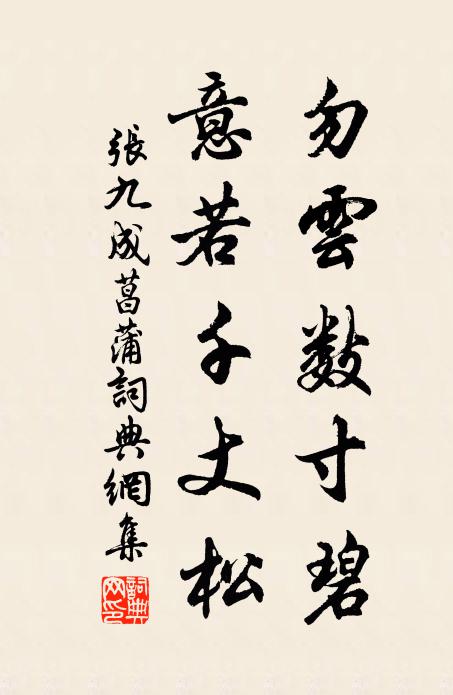 勿雲数寸碧
意若千丈松
張九成菖蒲詞典網集
詞典網印